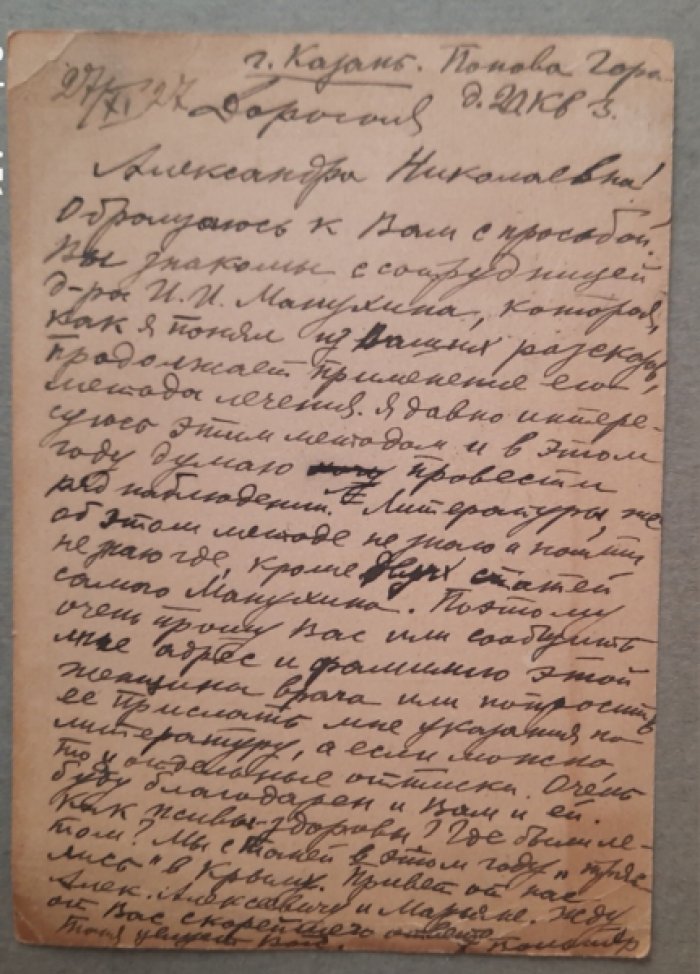 г. Казань. Попова Гора
27/XI 27 д. 20 кв 3.
Дорогая
Александра Николаевна!
Обращаюсь к Вам с просьбой.
Вы знакомы с сотрудницей
д-ра И.И. Манухина, которая,
как я понял из Ваших рассказов,
продолжает применение его
метода лечения. Я давно интере-
суюсь этим методом и в этом
году думаю провести
ряд наблюдений. Литературы же
об этом методе не знаю и найти
не знаю где, кроме двух статей
самого Манухина. Поэтому
очень прошу Вас или сообщить
мне адрес и фамилию этой
женщины врача или попросить
ее прислать мне указания на
литературу, а если можно
то и отдельные оттиски. Очень
буду благодарен и Вам и ей.
Как живы-здоровы? Где были ле-
том? Мы с Таней в этом году "тряс
лись" в Крыму. Привет от нас
Алек. Алексеевичу и Марьяне. Жду
от Вас скорейшего ответа
Таня целует Вас.